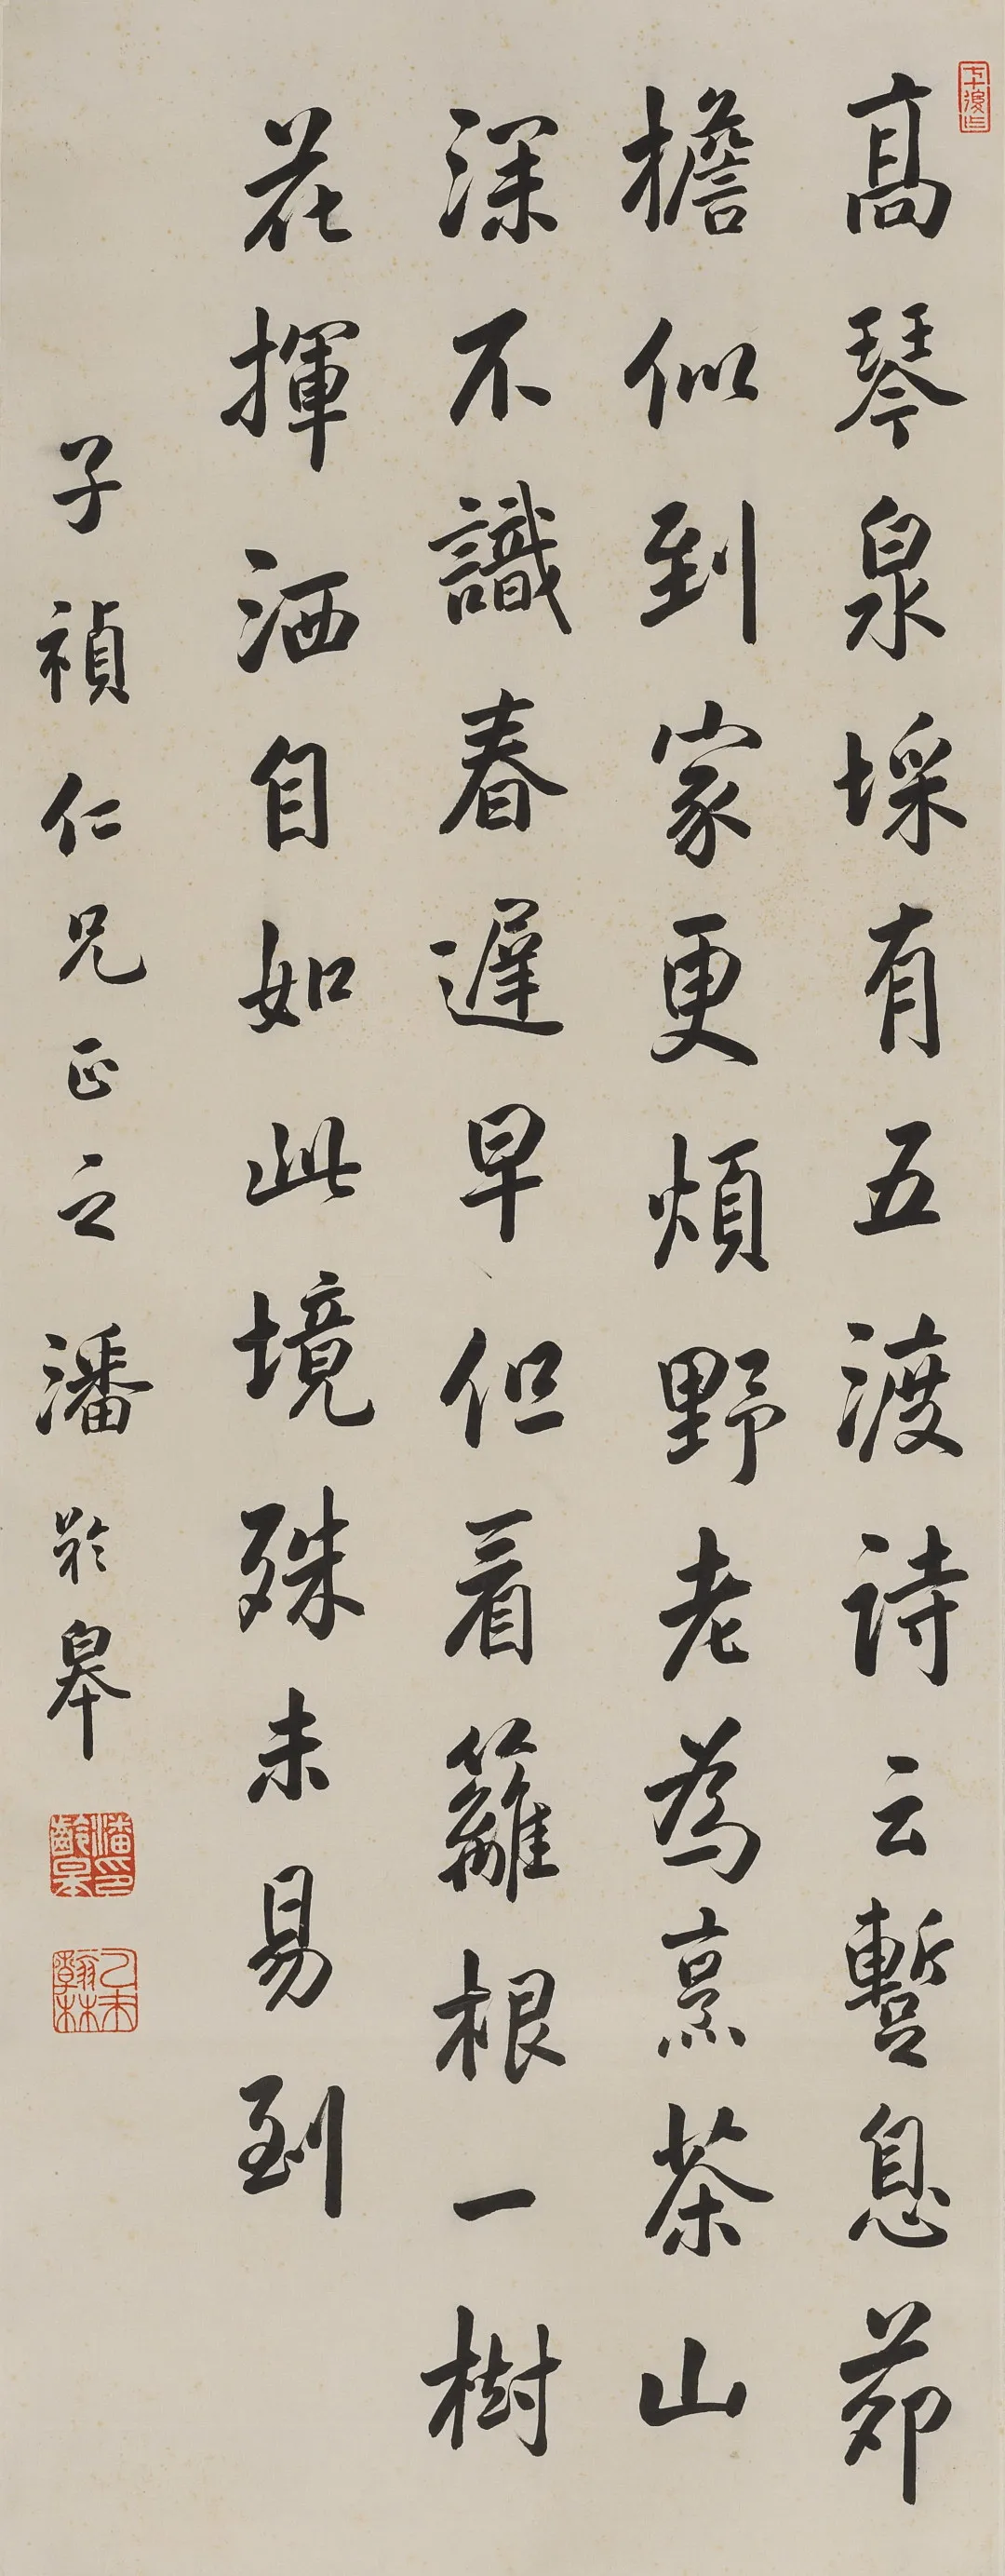 高琴泉埰有五渡詩云暫息茆
檐似到家更煩野老為烹茶山
深不識春遲早但看籬根一樹
花揮洒自如此境殊未易到
子禎仁兄正之 潘齡皋
潘齡皋印
乙未翰林